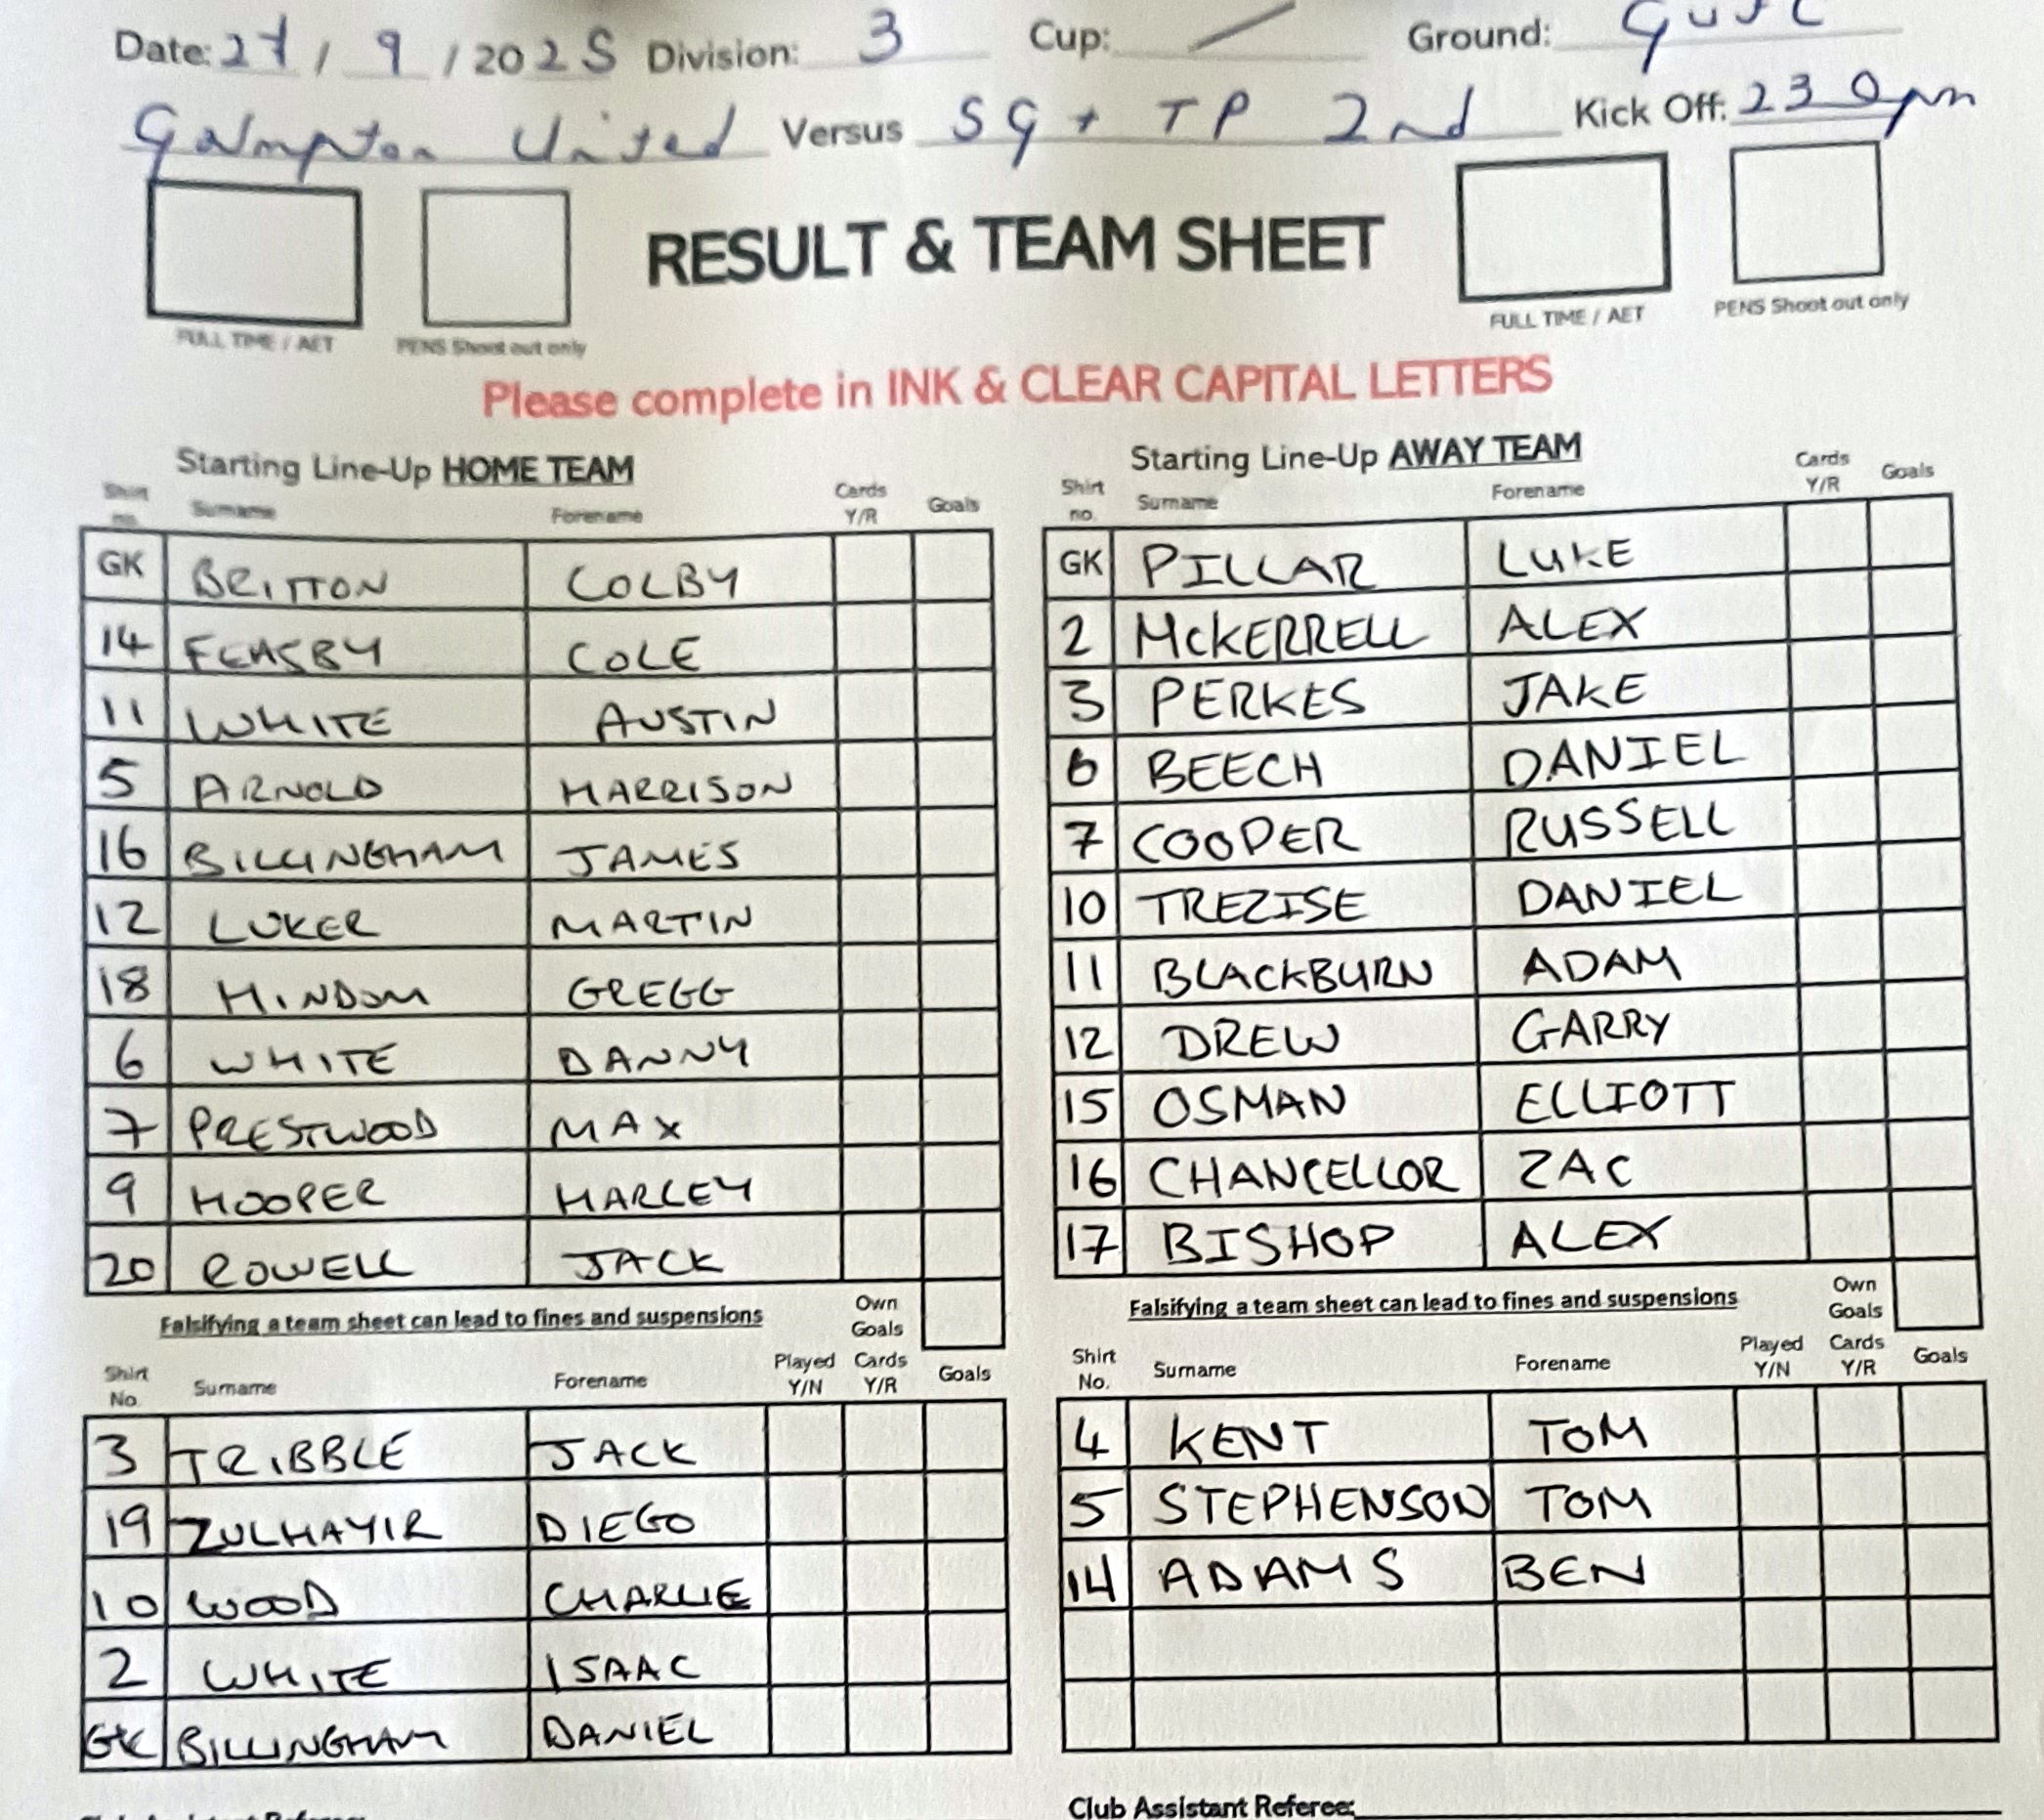 Date: 27 / 9 / 2025 Division: 3 Cup: / Ground:
Galmpton United Versus SG + TP 2nd Kick Off: 230pm
RESULT & TEAM SHEET
FULL TIME / AET PENS Shoot out only FULL TIME / AET PENS Shoot out only
Please complete in INK & CLEAR CAPITAL LETTERS
Starting Line-Up HOME TEAM
Shirt no. Surname Forename Cards Y/R Goals
GK BRITTON COLBY
14 FEASBY COLE
11 WHITE AUSTIN
5 ARNOLD HARRISON
16 BILLINGHAM JAMES
12 LUKER MARTIN
18 HINDOM GREGG
6 WHITE DANNY
7 PRESTWOOD MAX
9 HOOPER HARLEY
20 ROWELL JACK
Falsifying a team sheet can lead to fines and suspensions Own Goals
Shirt No. Surname Forename Played Y/N Cards Y/R Goals
3 TRIBBLE JACK
19 ZULHAYIR DIEGO
10 WOOD CHARLIE
2 WHITE ISAAC
GK BILLINGHAM DANIEL
Starting Line-Up AWAY TEAM
Shirt no. Surname Forename Cards Y/R Goals
GK PILLAR LUKE
2 MCKERRELL ALEX
3 PERKES JAKE
6 BEECH DANIEL
7 COOPER RUSSELL
10 TREZISE DANIEL
11 BLACKBURN ADAM
12 DREW GARRY
15 OSMAN ELLIOTT
16 CHANCELLOR ZAC
17 BISHOP ALEX
Falsifying a team sheet can lead to fines and suspensions Own Goals
Shirt No. Surname Forename Played Y/N Cards Y/R Goals
4 KENT TOM
5 STEPHENSON TOM
14 ADAMS BEN
Club Assistant Referee: